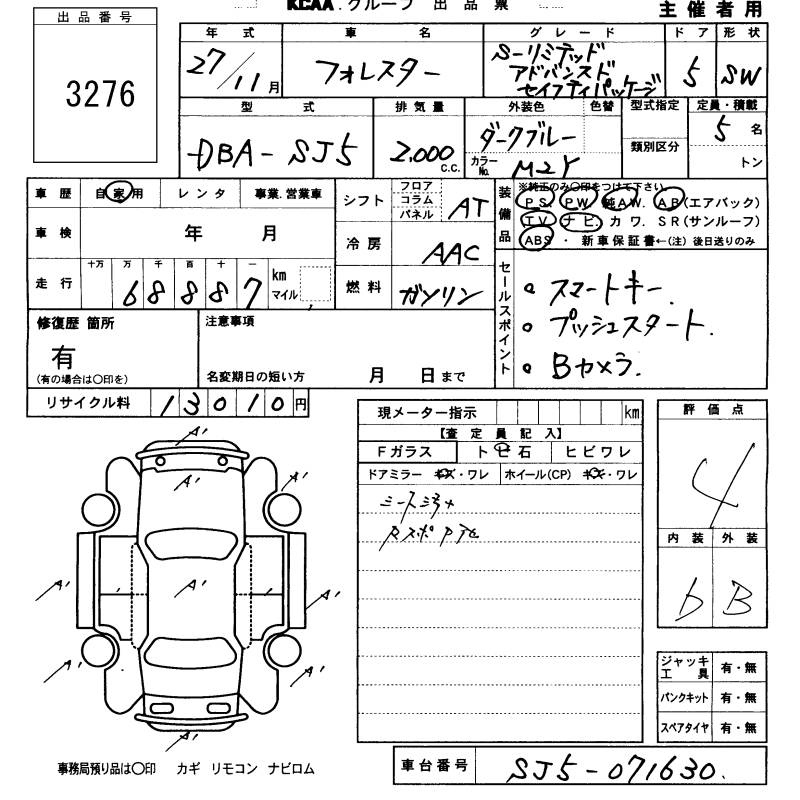 KCAA.グループ 出品票
主催者用
出品番号
3276
年式 車名 グレード ドア 形状
27/11月 フォレスター S-リミテッド アドバンスド セイフティパッケージ 5 SW
型式 排気量 外装色 色替 型式指定 定員・積載
DBA-SJ5 2,000 c.c. ダークブルー
カラーNo. M2Y
類別区分
5名
トン
車歴 自家用 レンタ 事業.営業車
車検 年 月
走行 十万 万 千 百 十 一
68887 km マイル
シフト フロア コラム パネル AT
冷房 AAC
燃料 ガソリン
装備品
※純正のみ〇印をつけて下さい。
PS. PW. 純AW. AB(エアバック)
TV. ナビ. カワ. SR(サンルーフ)
ABS ・ 新車保証書←(注) 後日送りのみ
セールスポイント
。スマートキー.
。プッシュスタート.
。Bカメラ.
修復歴 箇所
有
(有の場合は〇印を)
注意事項
名変期日の短い方 月 日まで
リサイクル料 13010円
現メーター指示 km
【査定員記入】
Fガラス トビ石 ヒビワレ
ドアミラー キズ・ワレ ホイール(CP) キズ・ワレ
評価点
4
内装 外装
b B
A'
A'
A'
A'
A'
A'
A'
A'
A'
A'
ジャッキ工具 有・無
パンクキット 有・無
スペアタイヤ 有・無
事務局預り品は〇印 カギ リモコン ナビロム
車台番号 SJ5-071630.